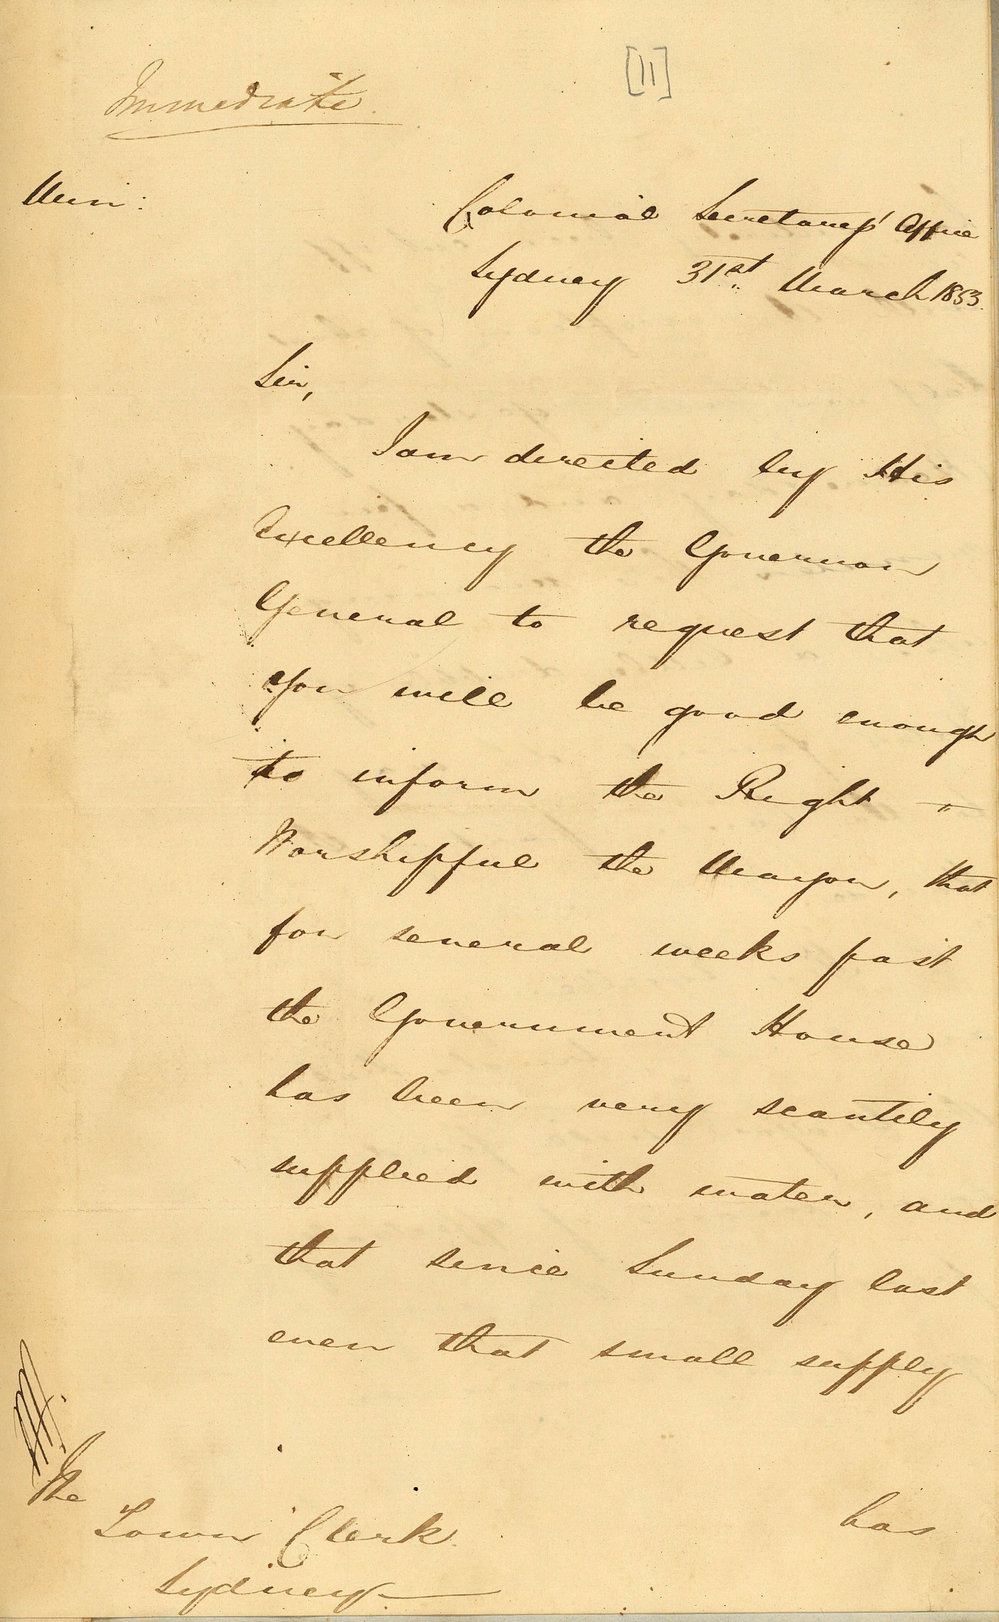 [11]
Immediate
Colonial Secretary's Office
Sydney 31st. March 1853.
Sir,
I am directed by His
Excellency the Governor
General to request that
you will be good enough
to inform the Right
Worshipful the Mayor, that
for several weeks past
the Government House
has been very scantily
supplied with water, and
that since Sunday last
even that small supply
has
The
Town Clerk.
Sydney